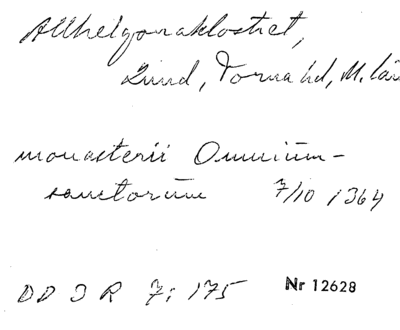 Allhelgonaklostret,
Lund, Torna hd, M. län
monasterii Omnium-
sanctorum 7/10 1364
DD 3 R 7: 175 Nr 12628